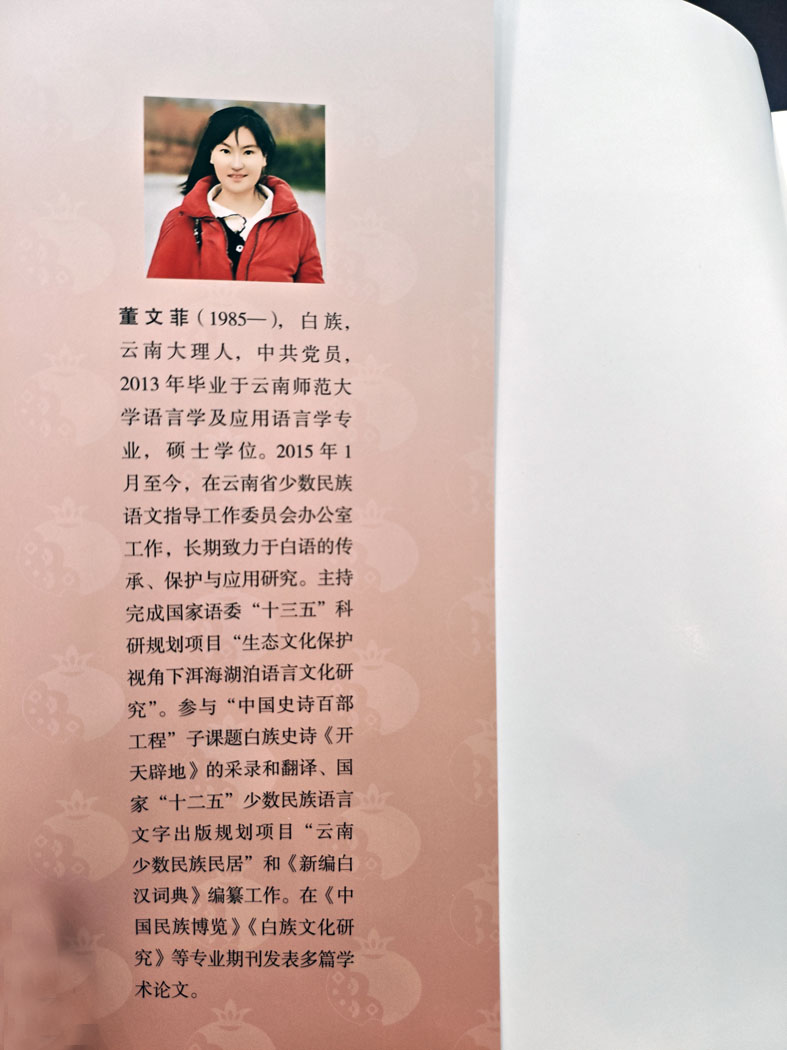 董文菲（1985—），白族，
云南大理人，中共党员，
2013 年毕业于云南师范大
学语言学及应用语言学专
业，硕士学位。2015 年 1
月至今，在云南省少数民族
语文指导工作委员会办公室
工作，长期致力于白语的传
承、保护与应用研究。主持
完成国家语委“十三五”科
研规划项目“生态文化保护
视角下洱海湖泊语言文化研
究”。参与“中国史诗百部
工程”子课题白族史诗《开
天辟地》的采录和翻译、国
家“十二五”少数民族语言
文字出版规划项目“云南
少数民族民居”和《新编白
汉词典》编纂工作。在《中
国民族博览》《白族文化研
究》等专业期刊发表多篇学
术论文。